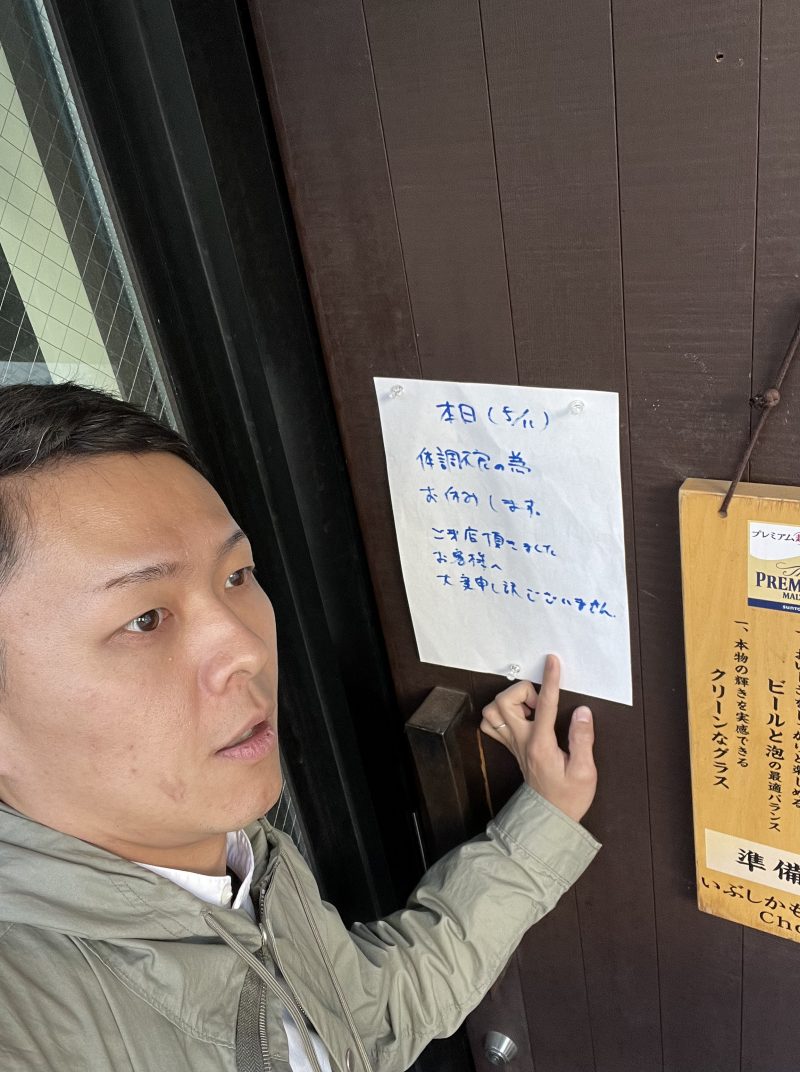 本日(5/11)
体調不良の為
お休みします。
ご来店頂きました
お客様へ
大変申し訳ございません。
プレミアム
PREM
MAL
SUNTO
ビールと泡の最適バランス
一、本物の輝きを実感できる
クリーンなグラス
準備
いぶしかも
Cho